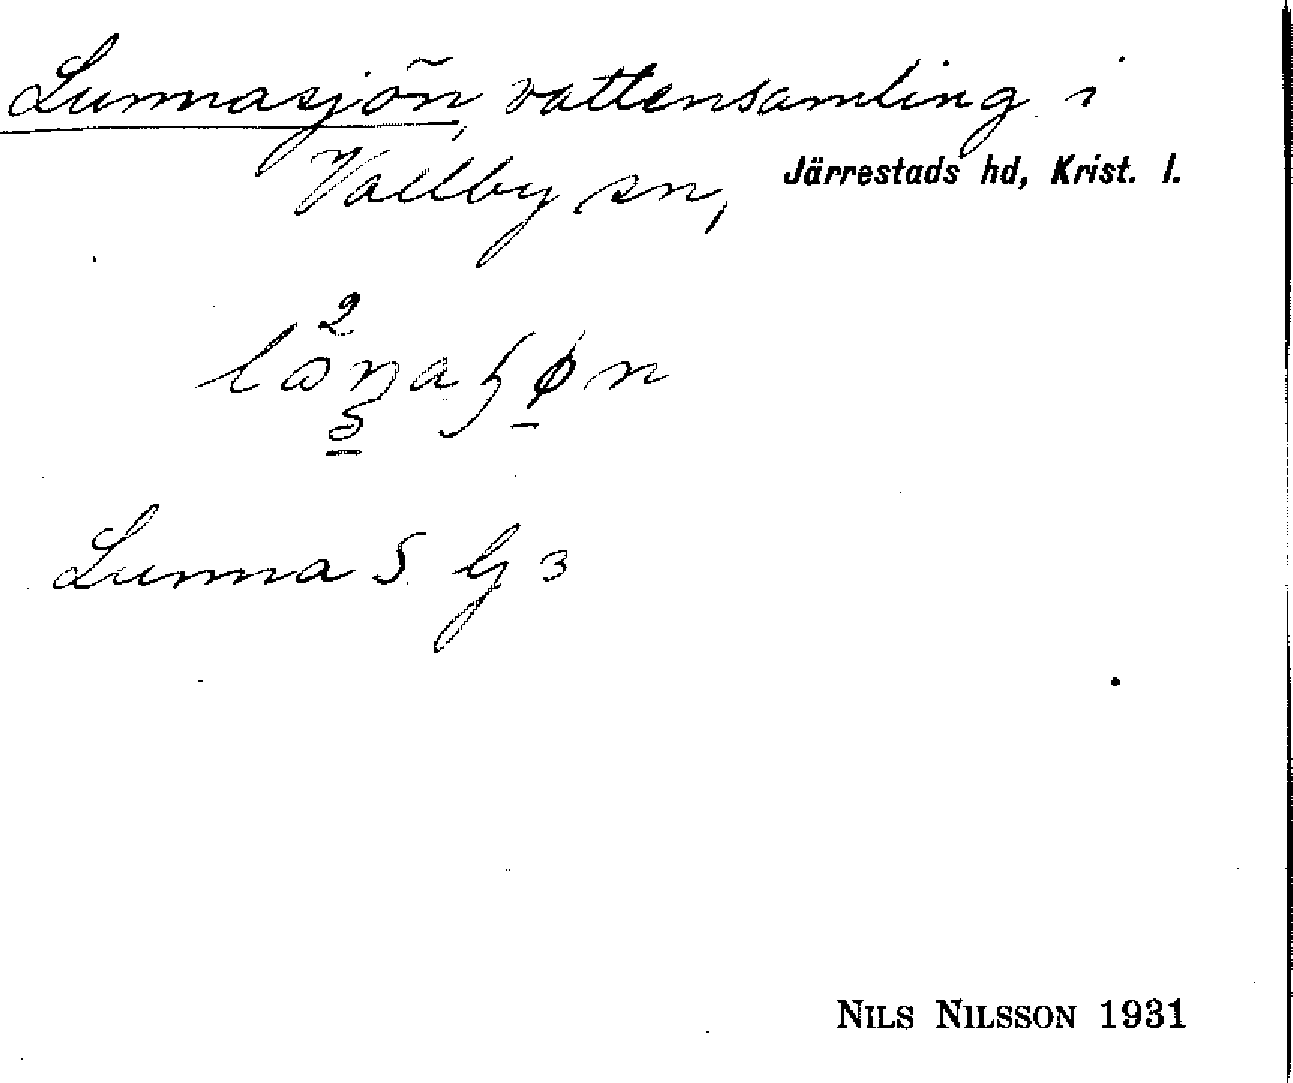 Lunnasjön, vattensamling i
Vallby sn, Järrestads hd, Krist. l.
Lunna S G 3
NILS NILSSON 1931